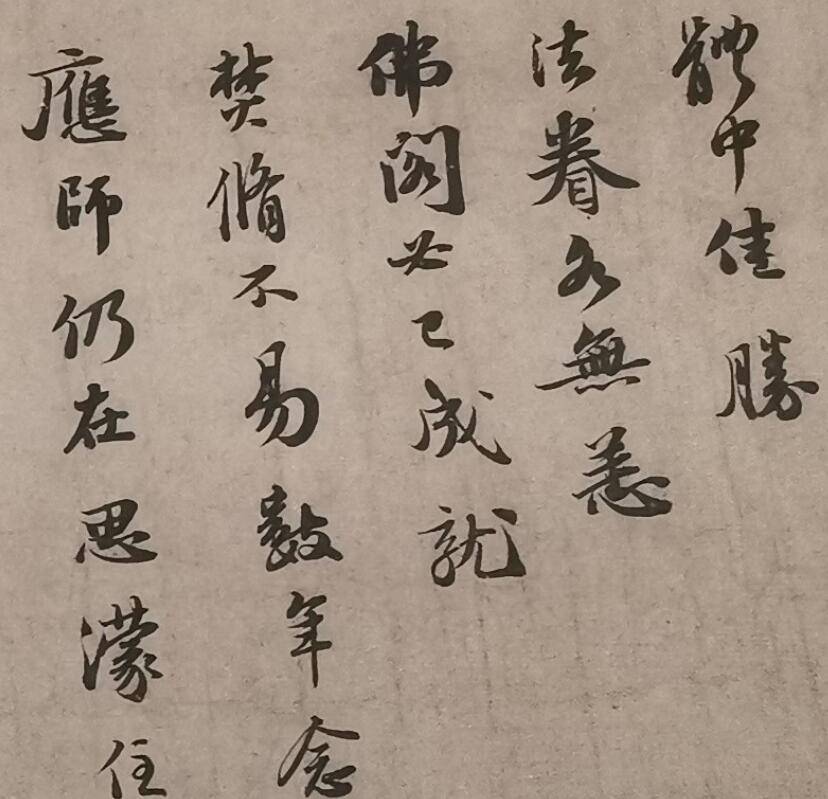 體中佳勝
法眷各無恙
佛閣必已成就
焚脩不易數年念
應師仍在思濛住